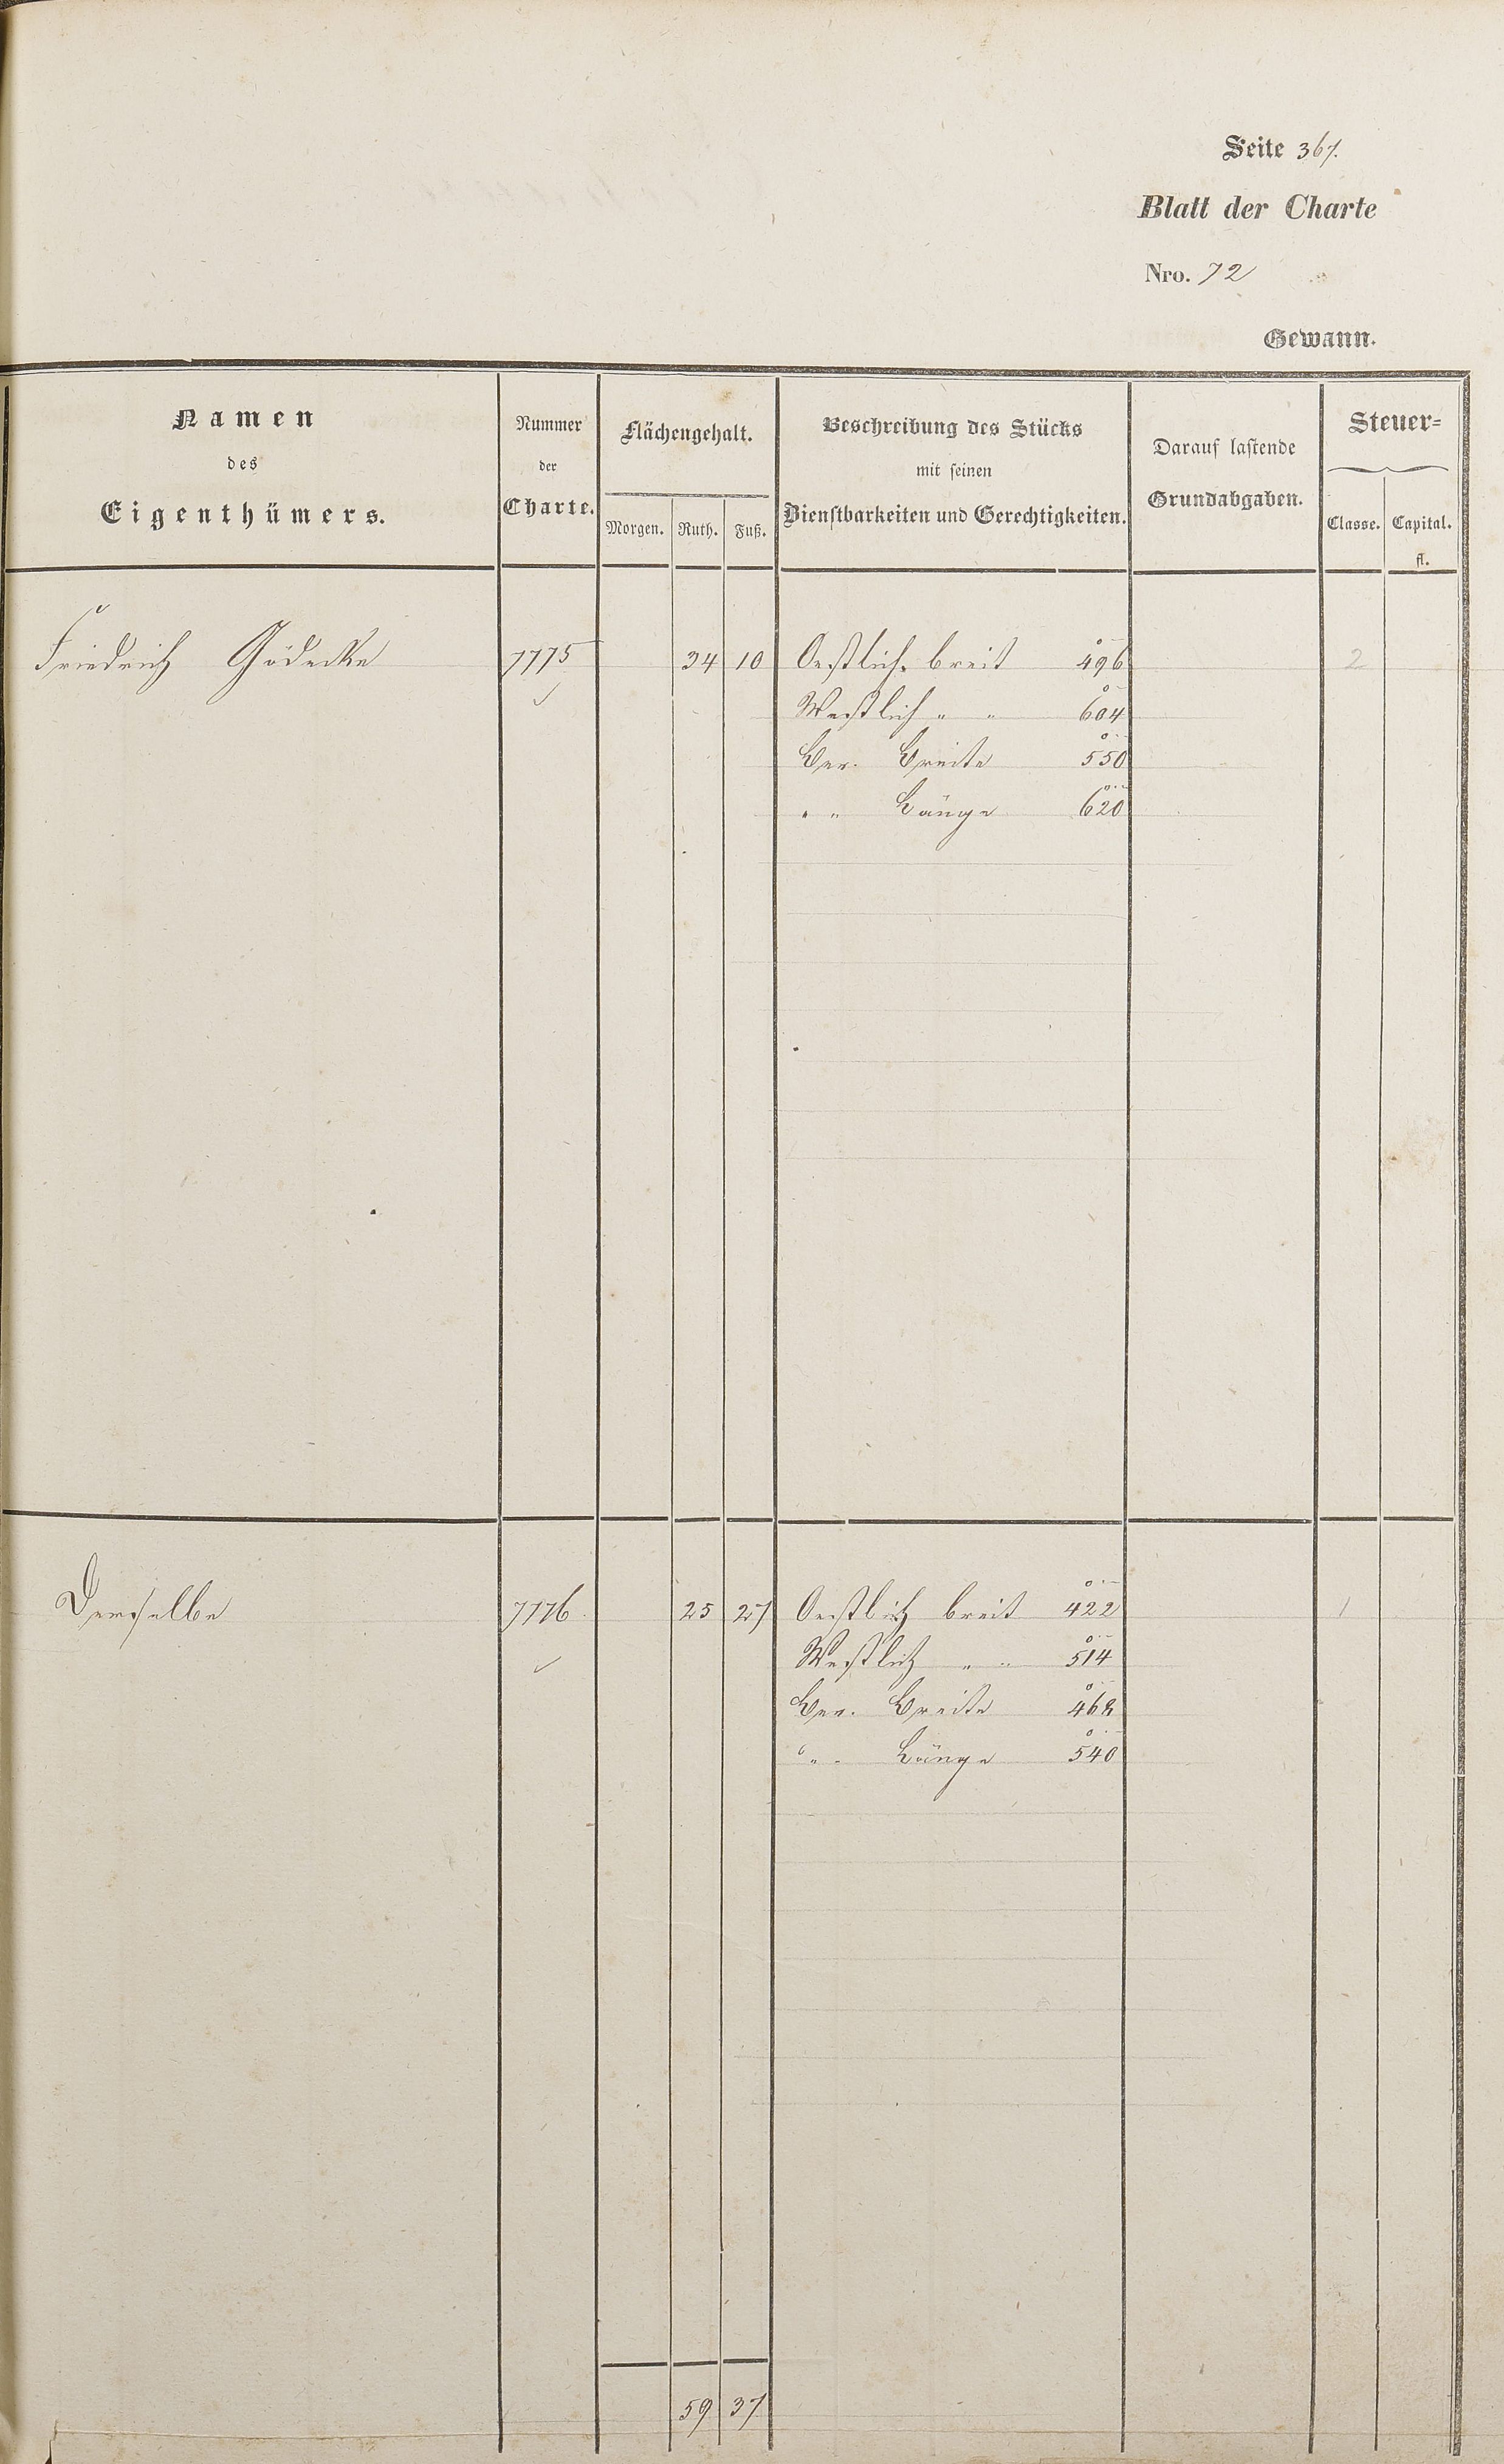 Seite 367.
Blatt der Charte
Nro. 72
Gewann.
Namen des Eigenthümers.
Nummer der Charte.
Flächengehalt.
Morgen. Ruth. Fuß.
Beschreibung des Stücks mit seinen Dienstbarkeiten und Gerechtigkeiten.
Darauf lastende Grundabgaben.
Steuer-
Classe. Capital.
fl.
Friedrich Gödecke 7775 34 10 Oestlich breit 496 2
Westlich " " 604
Ber. Breite 550
" " Länge 620
Derselbe 7776 25 27 Oestlich breit 422 1
Westlich " " 514
Ber. Breite 468
" " Länge 540
59 37